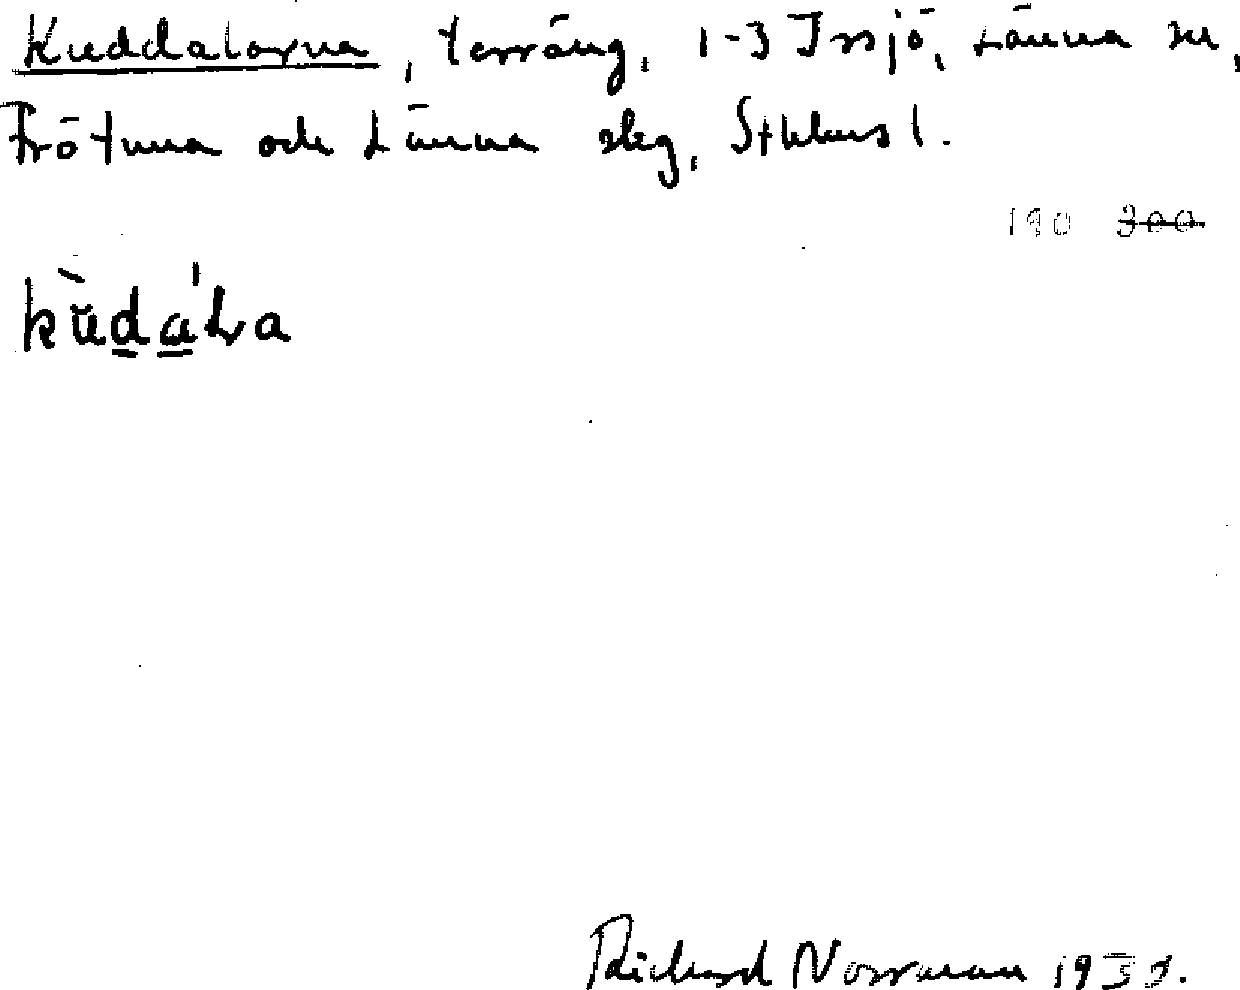 Kuddalarna, terräng, 1-3 Irsjö, Länna sn,
Frötuna och Länna slg, Sthlms l.
190 300
kùda̱'La
Richard Norrman 193